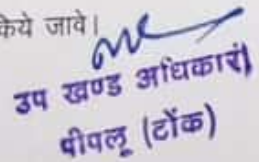 किये जावे।
उप खण्ड अधिकारी
पीपलू (टोंक)